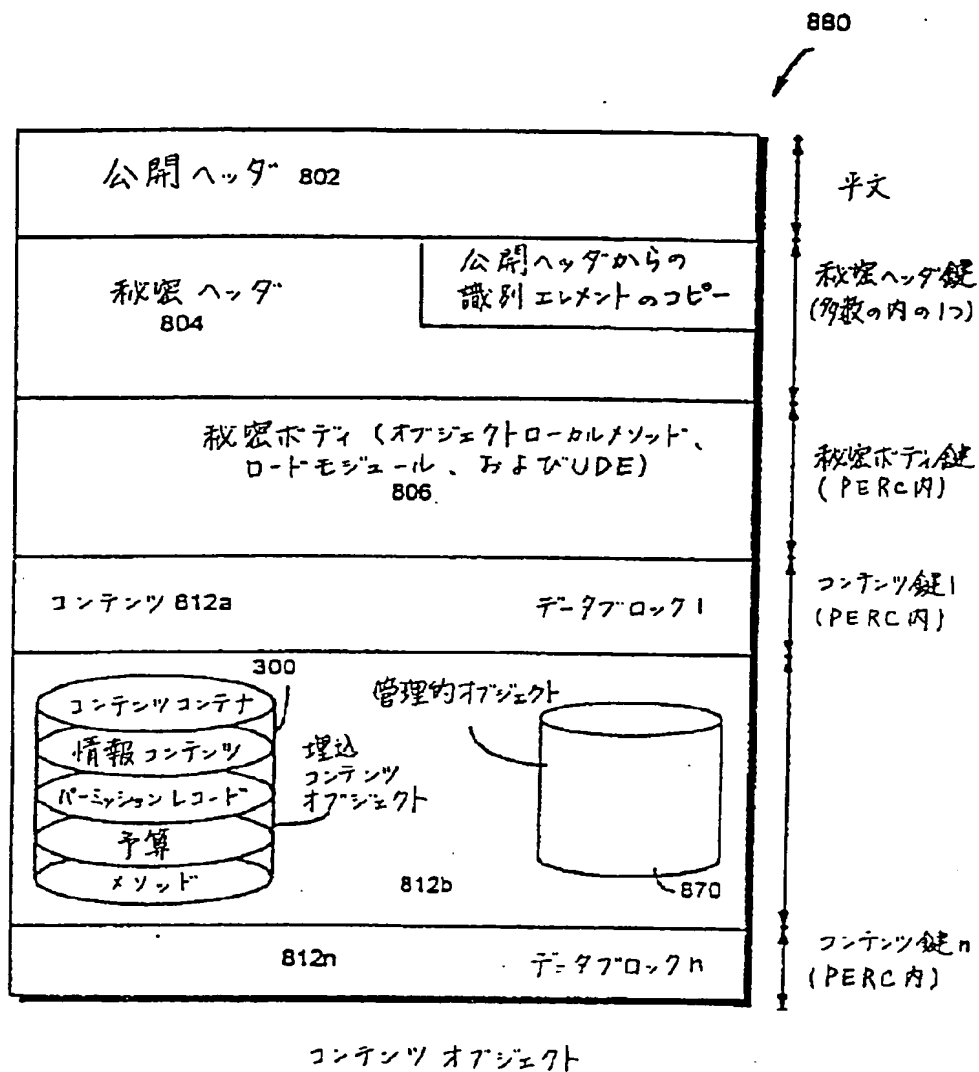 880
公開ヘッダ 802
平文
秘密ヘッダ
804
公開ヘッダからの
識別エレメントのコピー
秘密ヘッダ鍵
(多数の内の1つ)
秘密ボディ (オブジェクトローカルメソッド、
ロードモジュール、およびUDE)
806
秘密ボディ鍵
(PERC内)
コンテンツ 812a
データブロック1
コンテンツ鍵1
(PERC内)
300
コンテンツコンテナ
情報コンテンツ
パーミッションレコード
予算
メソッド
埋込
コンテンツ
オブジェクト
管理的オブジェクト
812b
870
812n
データブロックn
コンテンツ鍵n
(PERC内)
コンテンツ オブジェクト